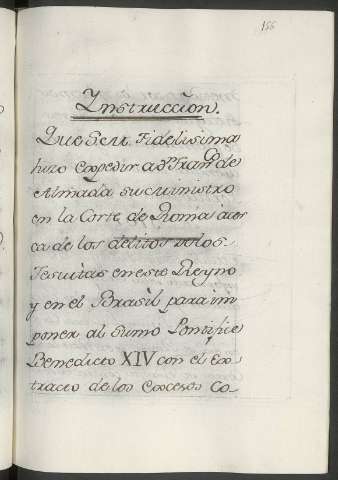 156
Instruccion.
Que S. M. Fidelisima
hizo expedir a Dn. Franco de
Almada su ministro
en la Corte de Roma acer
ca de los delitos de los
Jesuitas en este Reyno
y en el Brasil para im
poner al Sumo Pontifice
Benedicto XIV con el Ex
tracto de los excesos Co